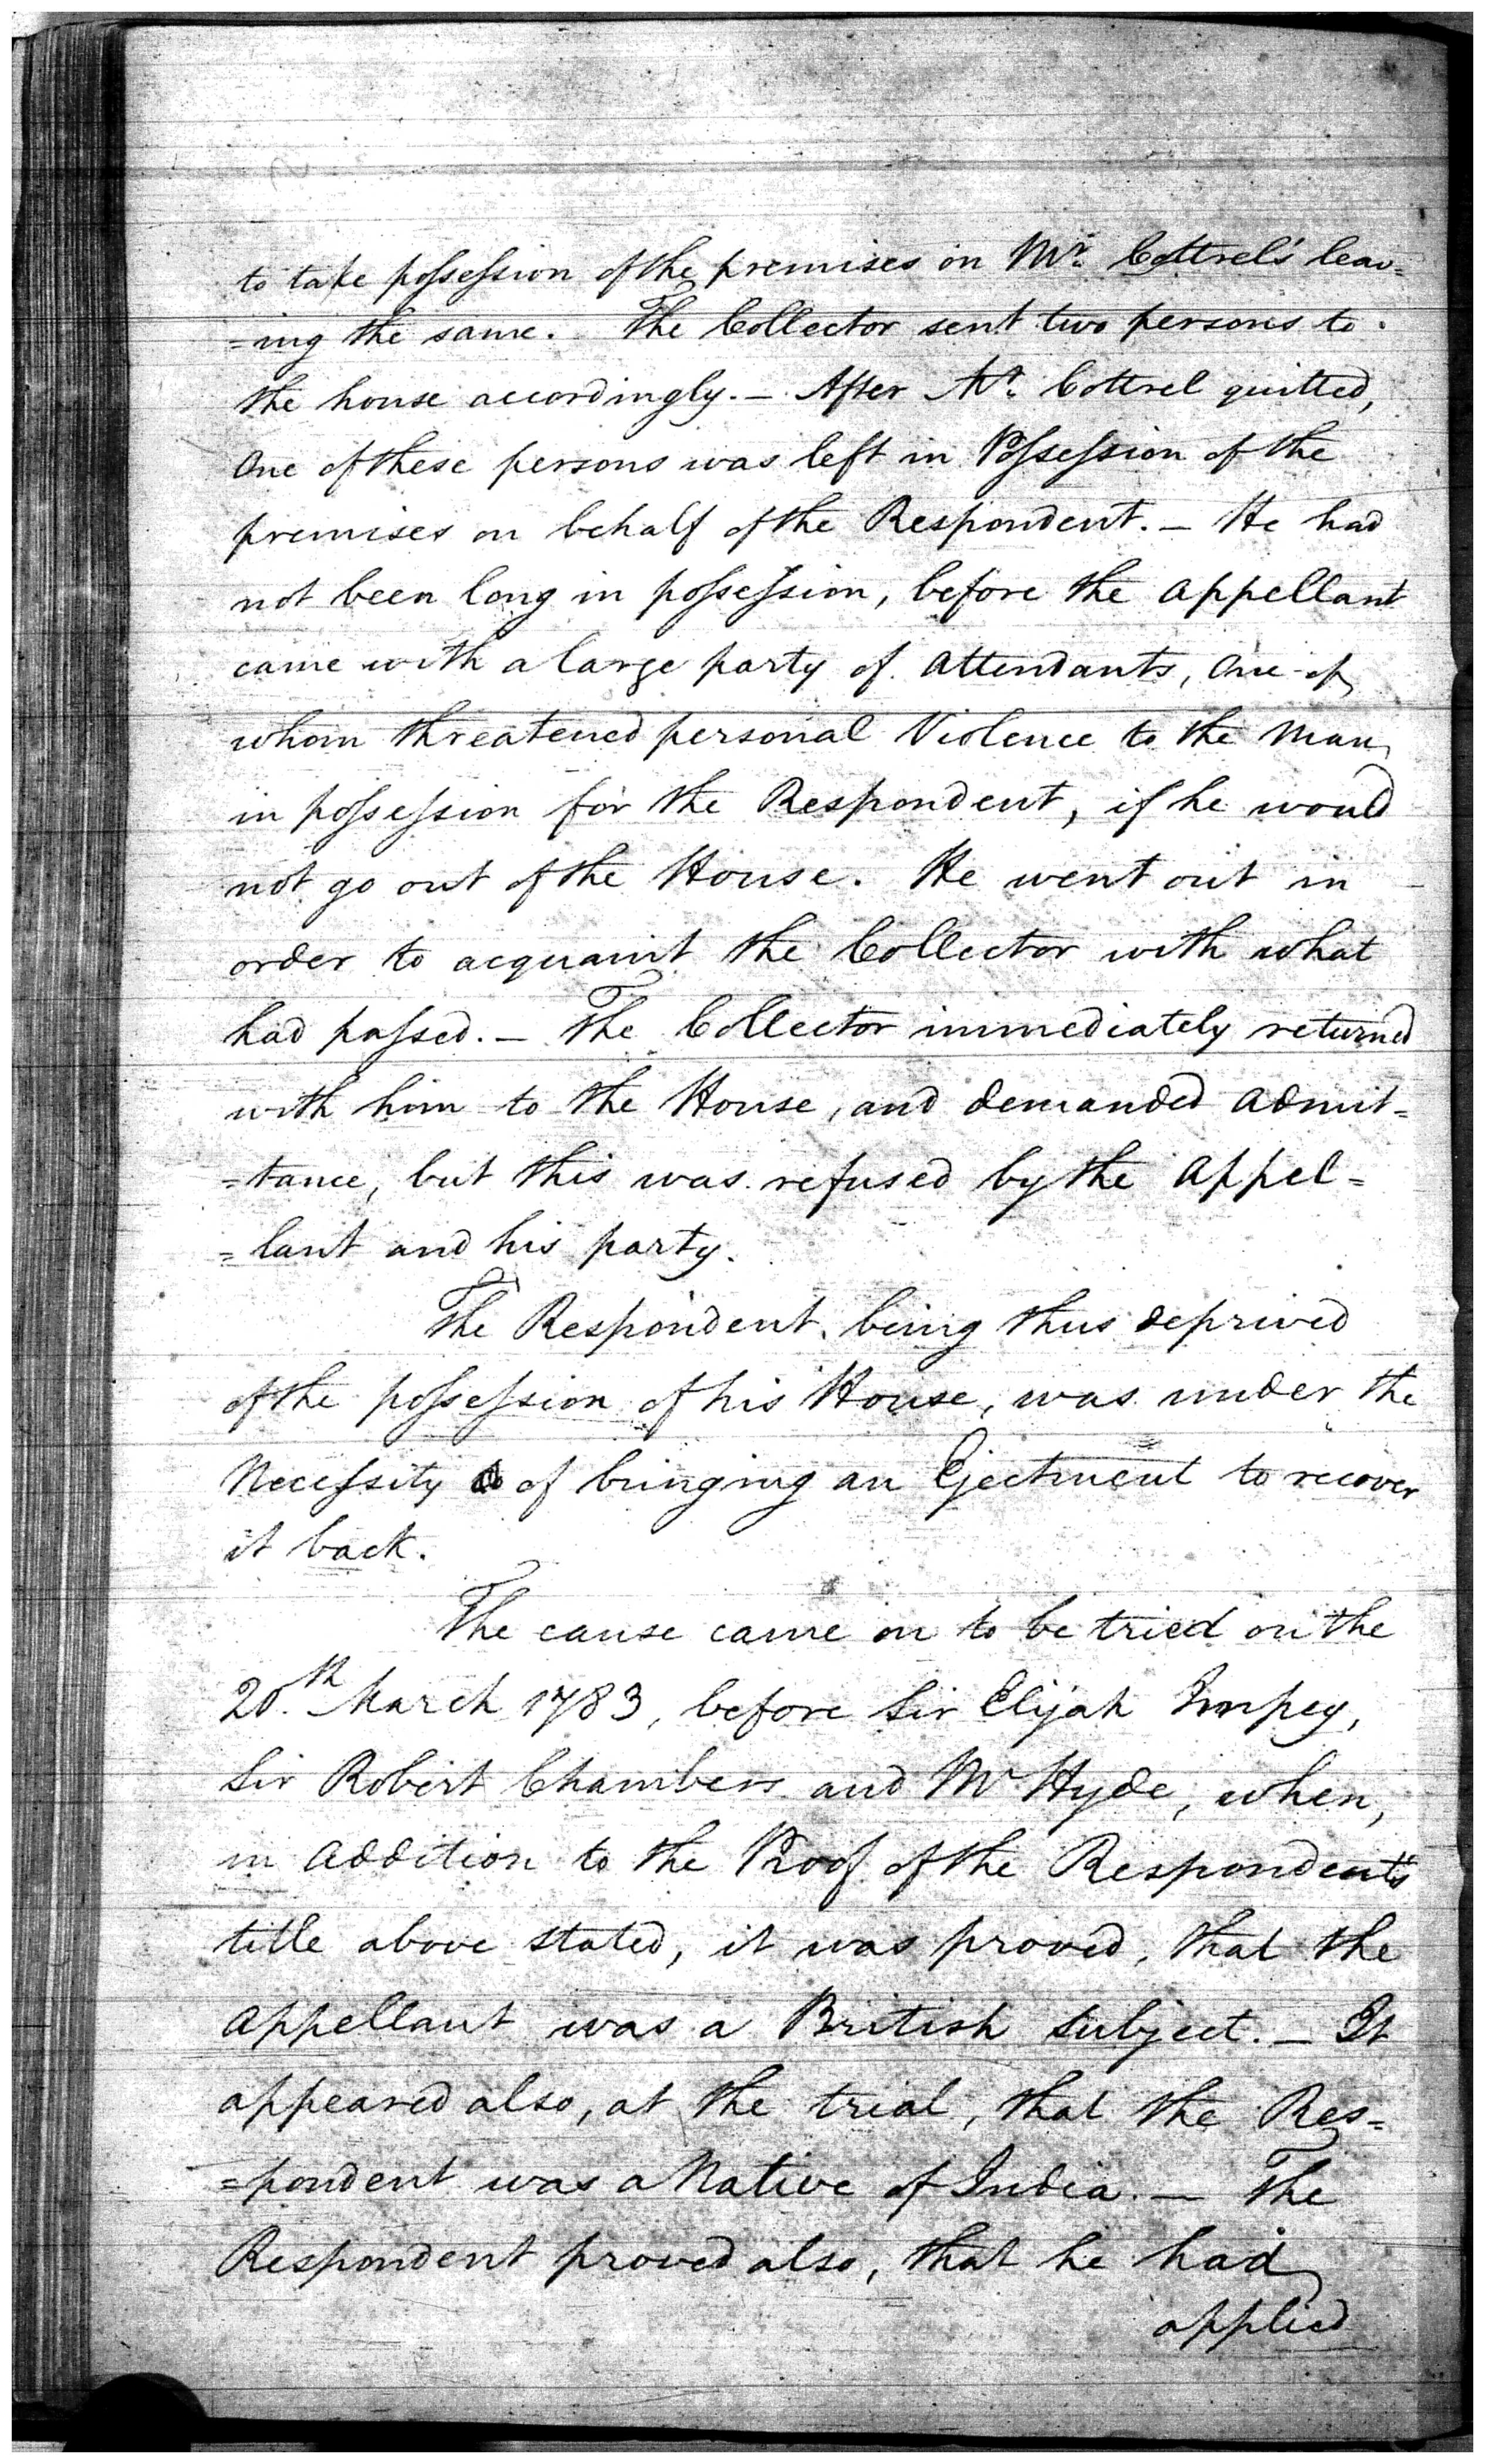 to take possession of the premises on Mr. Cottrel's leav=
=ing the same. The Collector sent two persons to
the house accordingly. — After Mr. Cottrel quitted,
One of these persons was left in Possession of the
premises on behalf of the Respondent. — He had
not been long in possession, before the Appellant
came with a large party of Attendants, One of
whom threatened personal Violence to the Man
in possession for the Respondent, if he would
not go out of the House. He went out in
order to acquaint the Collector with what
had passed. — The Collector immediately returned
with him to the House, and demanded Admit=
=tance, but this was refused by the Appel=
=lant and his party.
The Respondent being thus deprived
of the possession of his House, was under the
Necessity of bringing an Ejectment to recover
it back.
The cause came on to be tried on the
20.th March 1783, before Sir Elijah Impey,
Sir Robert Chambers and Mr Hyde, when,
in Addition to the Proof of the Respondent's
title above stated, it was proved, that the
Appellant was a British Subject. — It
appeared also, at the trial, that the Res=
=pondent was a Native of India. — The
Respondent proved also, that he had
applied